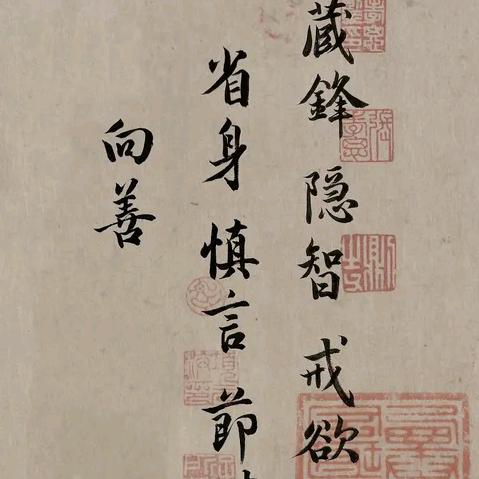 蔵鋒 隐智 戒欲
省身 慎言 節
向善